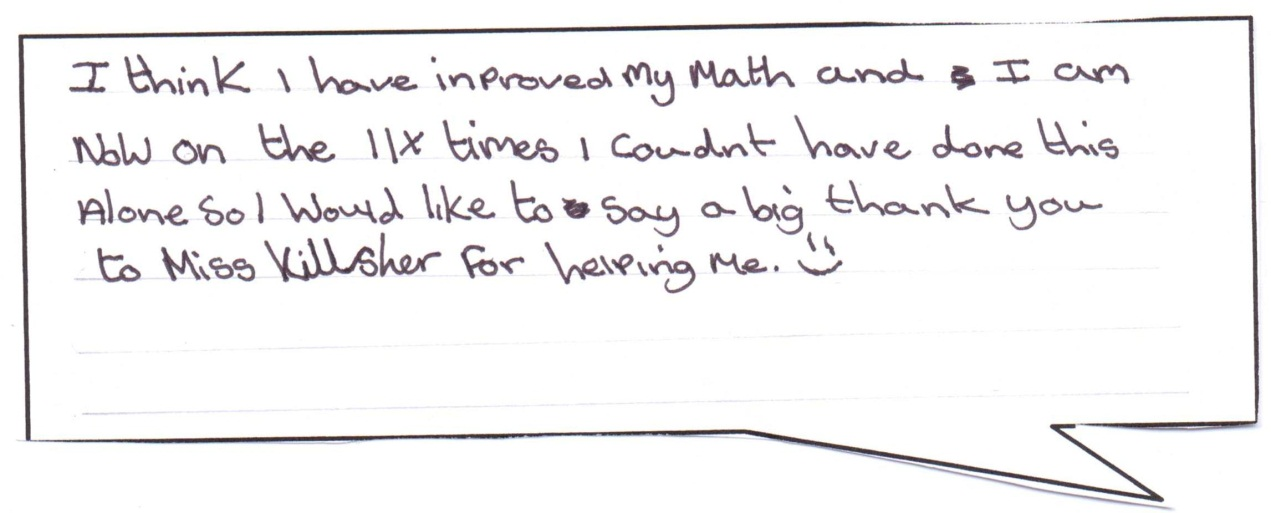 I think I have inproved My Math and I am
Now on the 11x times I Coudnt have done this
Alone So I Would like to say a big thank you
to Miss Killsher For helping Me.